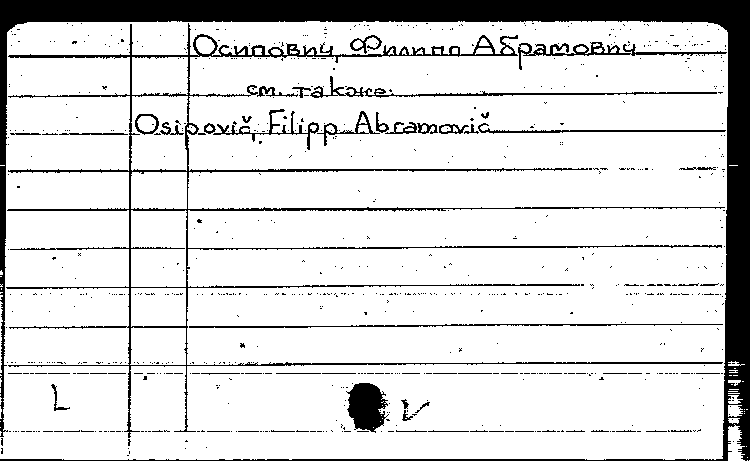 Осипович, Филипп Абрамович
см. также:
Osipovič, Filipp Abramovič
L
V